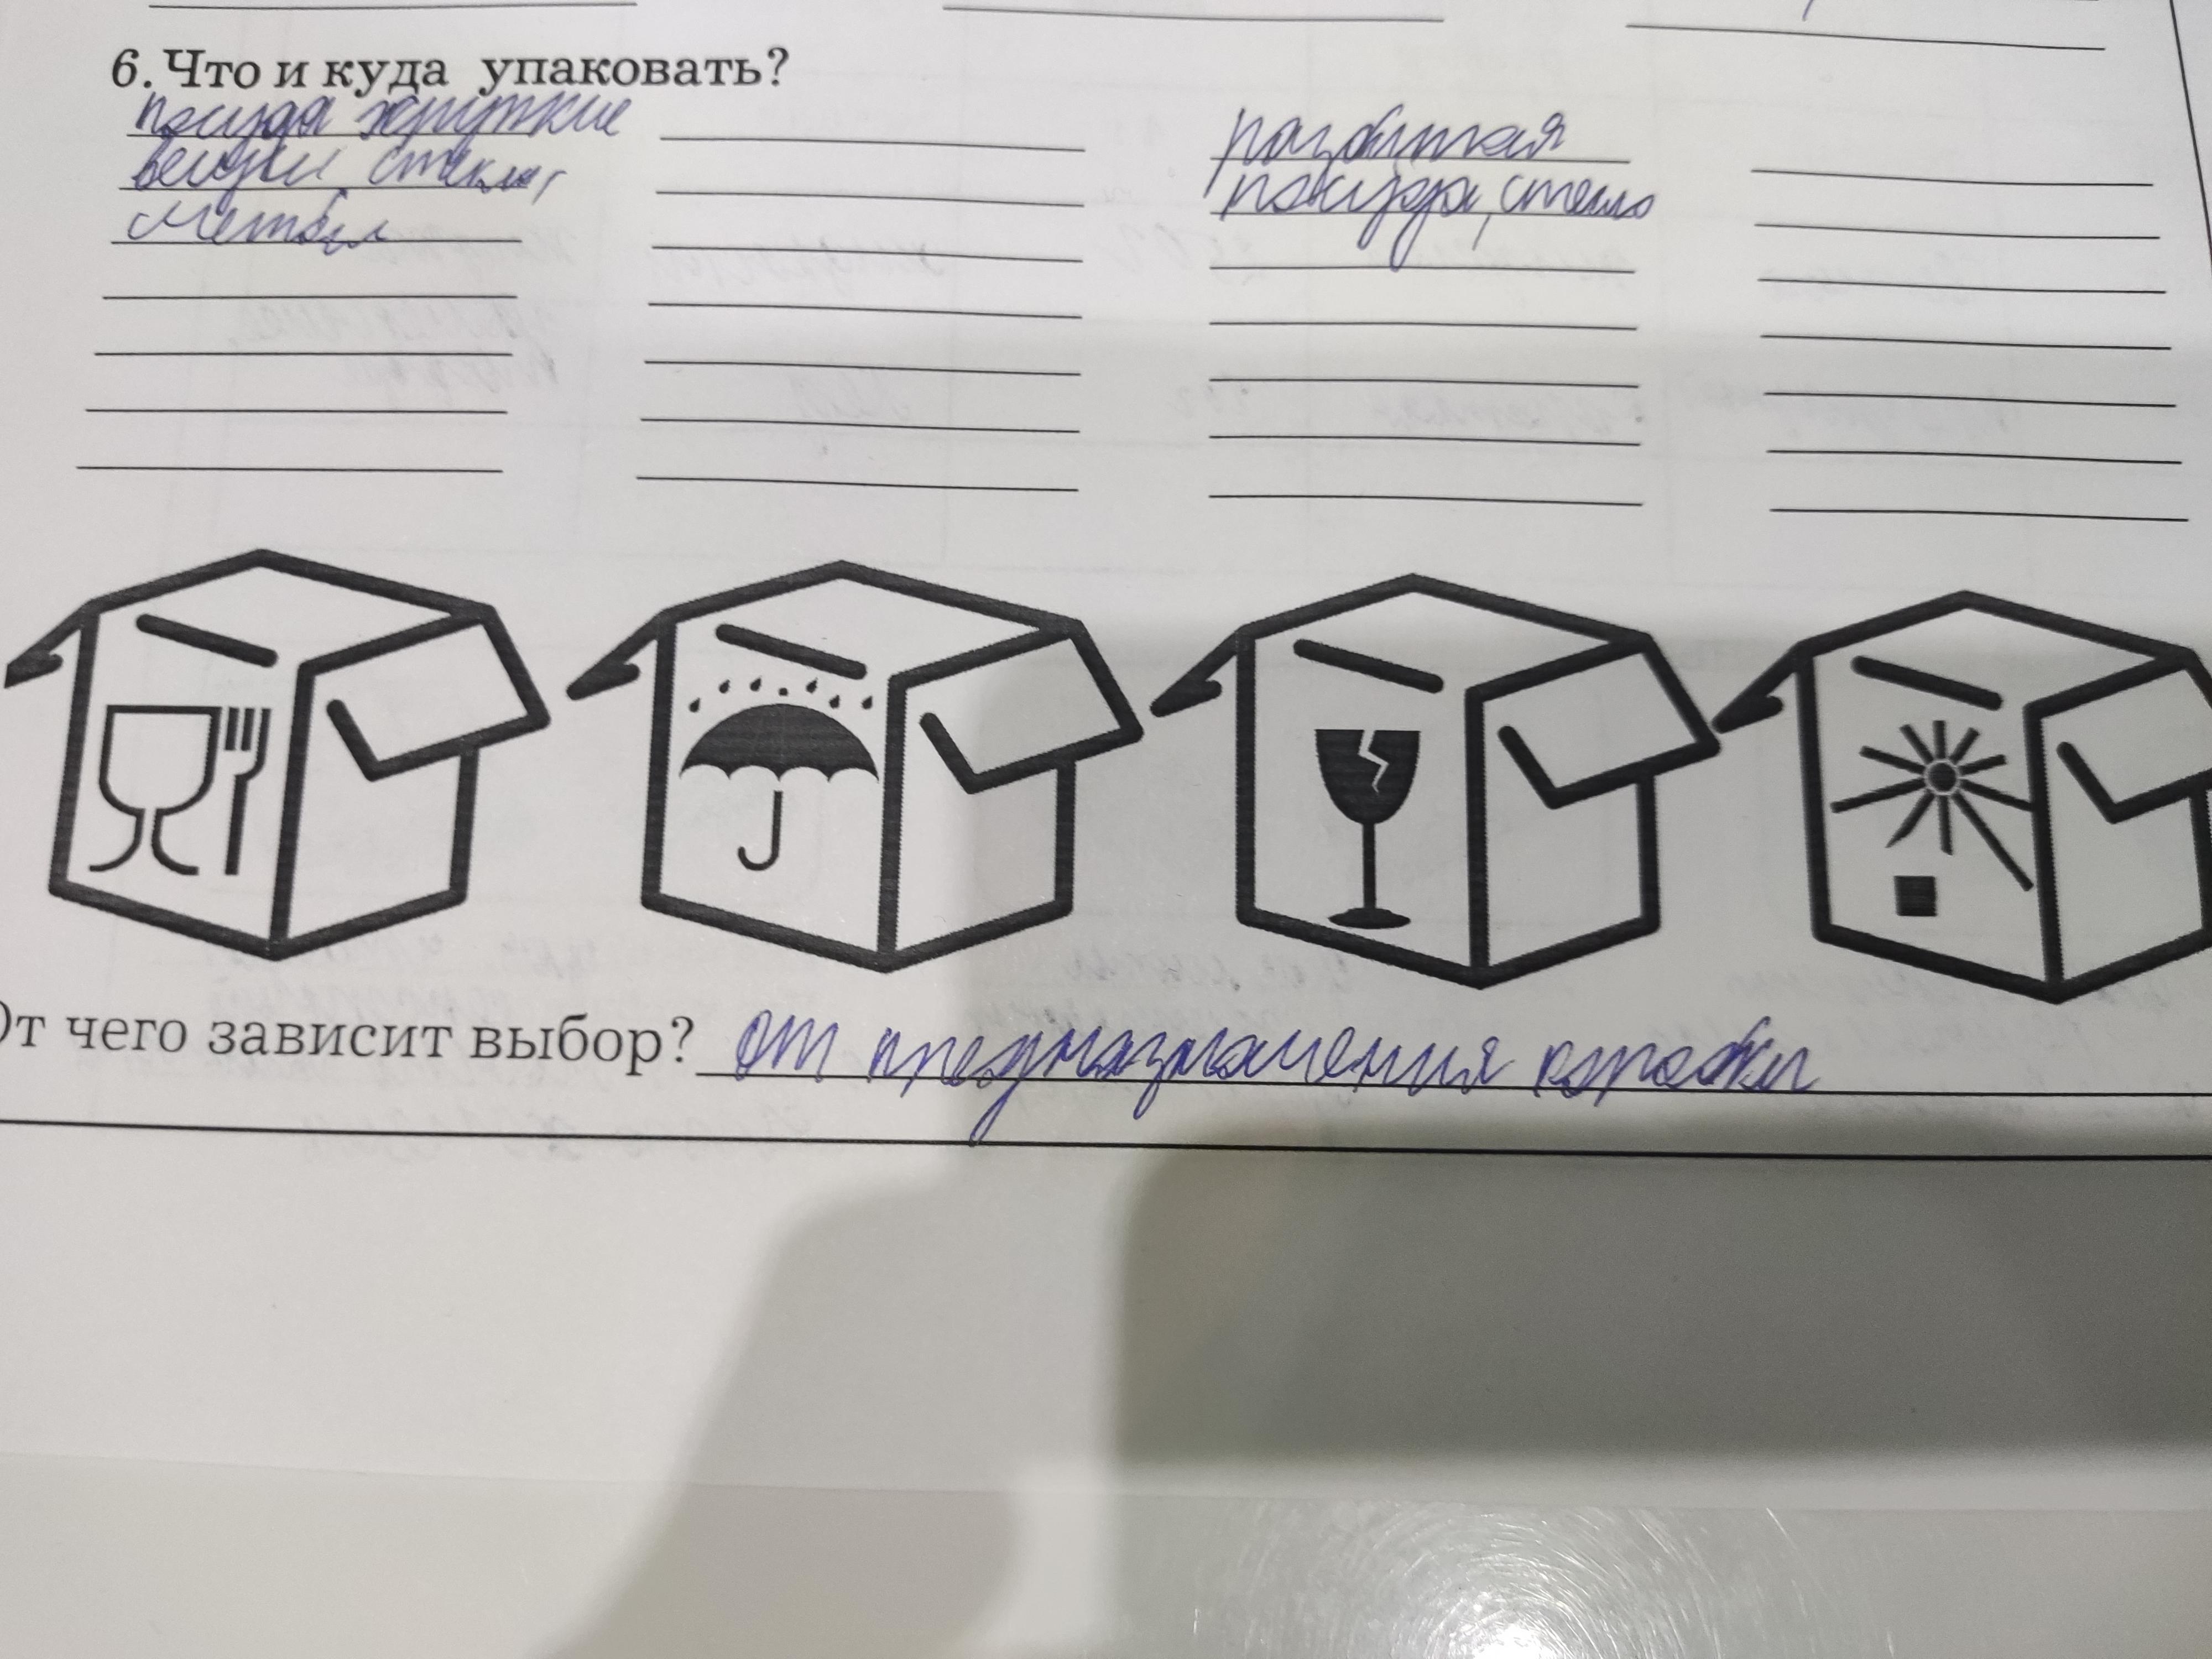 6. Что и куда упаковать?
посуда хрупкие
вещи стекло,
металл
разбитая
посуда, стекло
От чего зависит выбор? от предназначения коробки